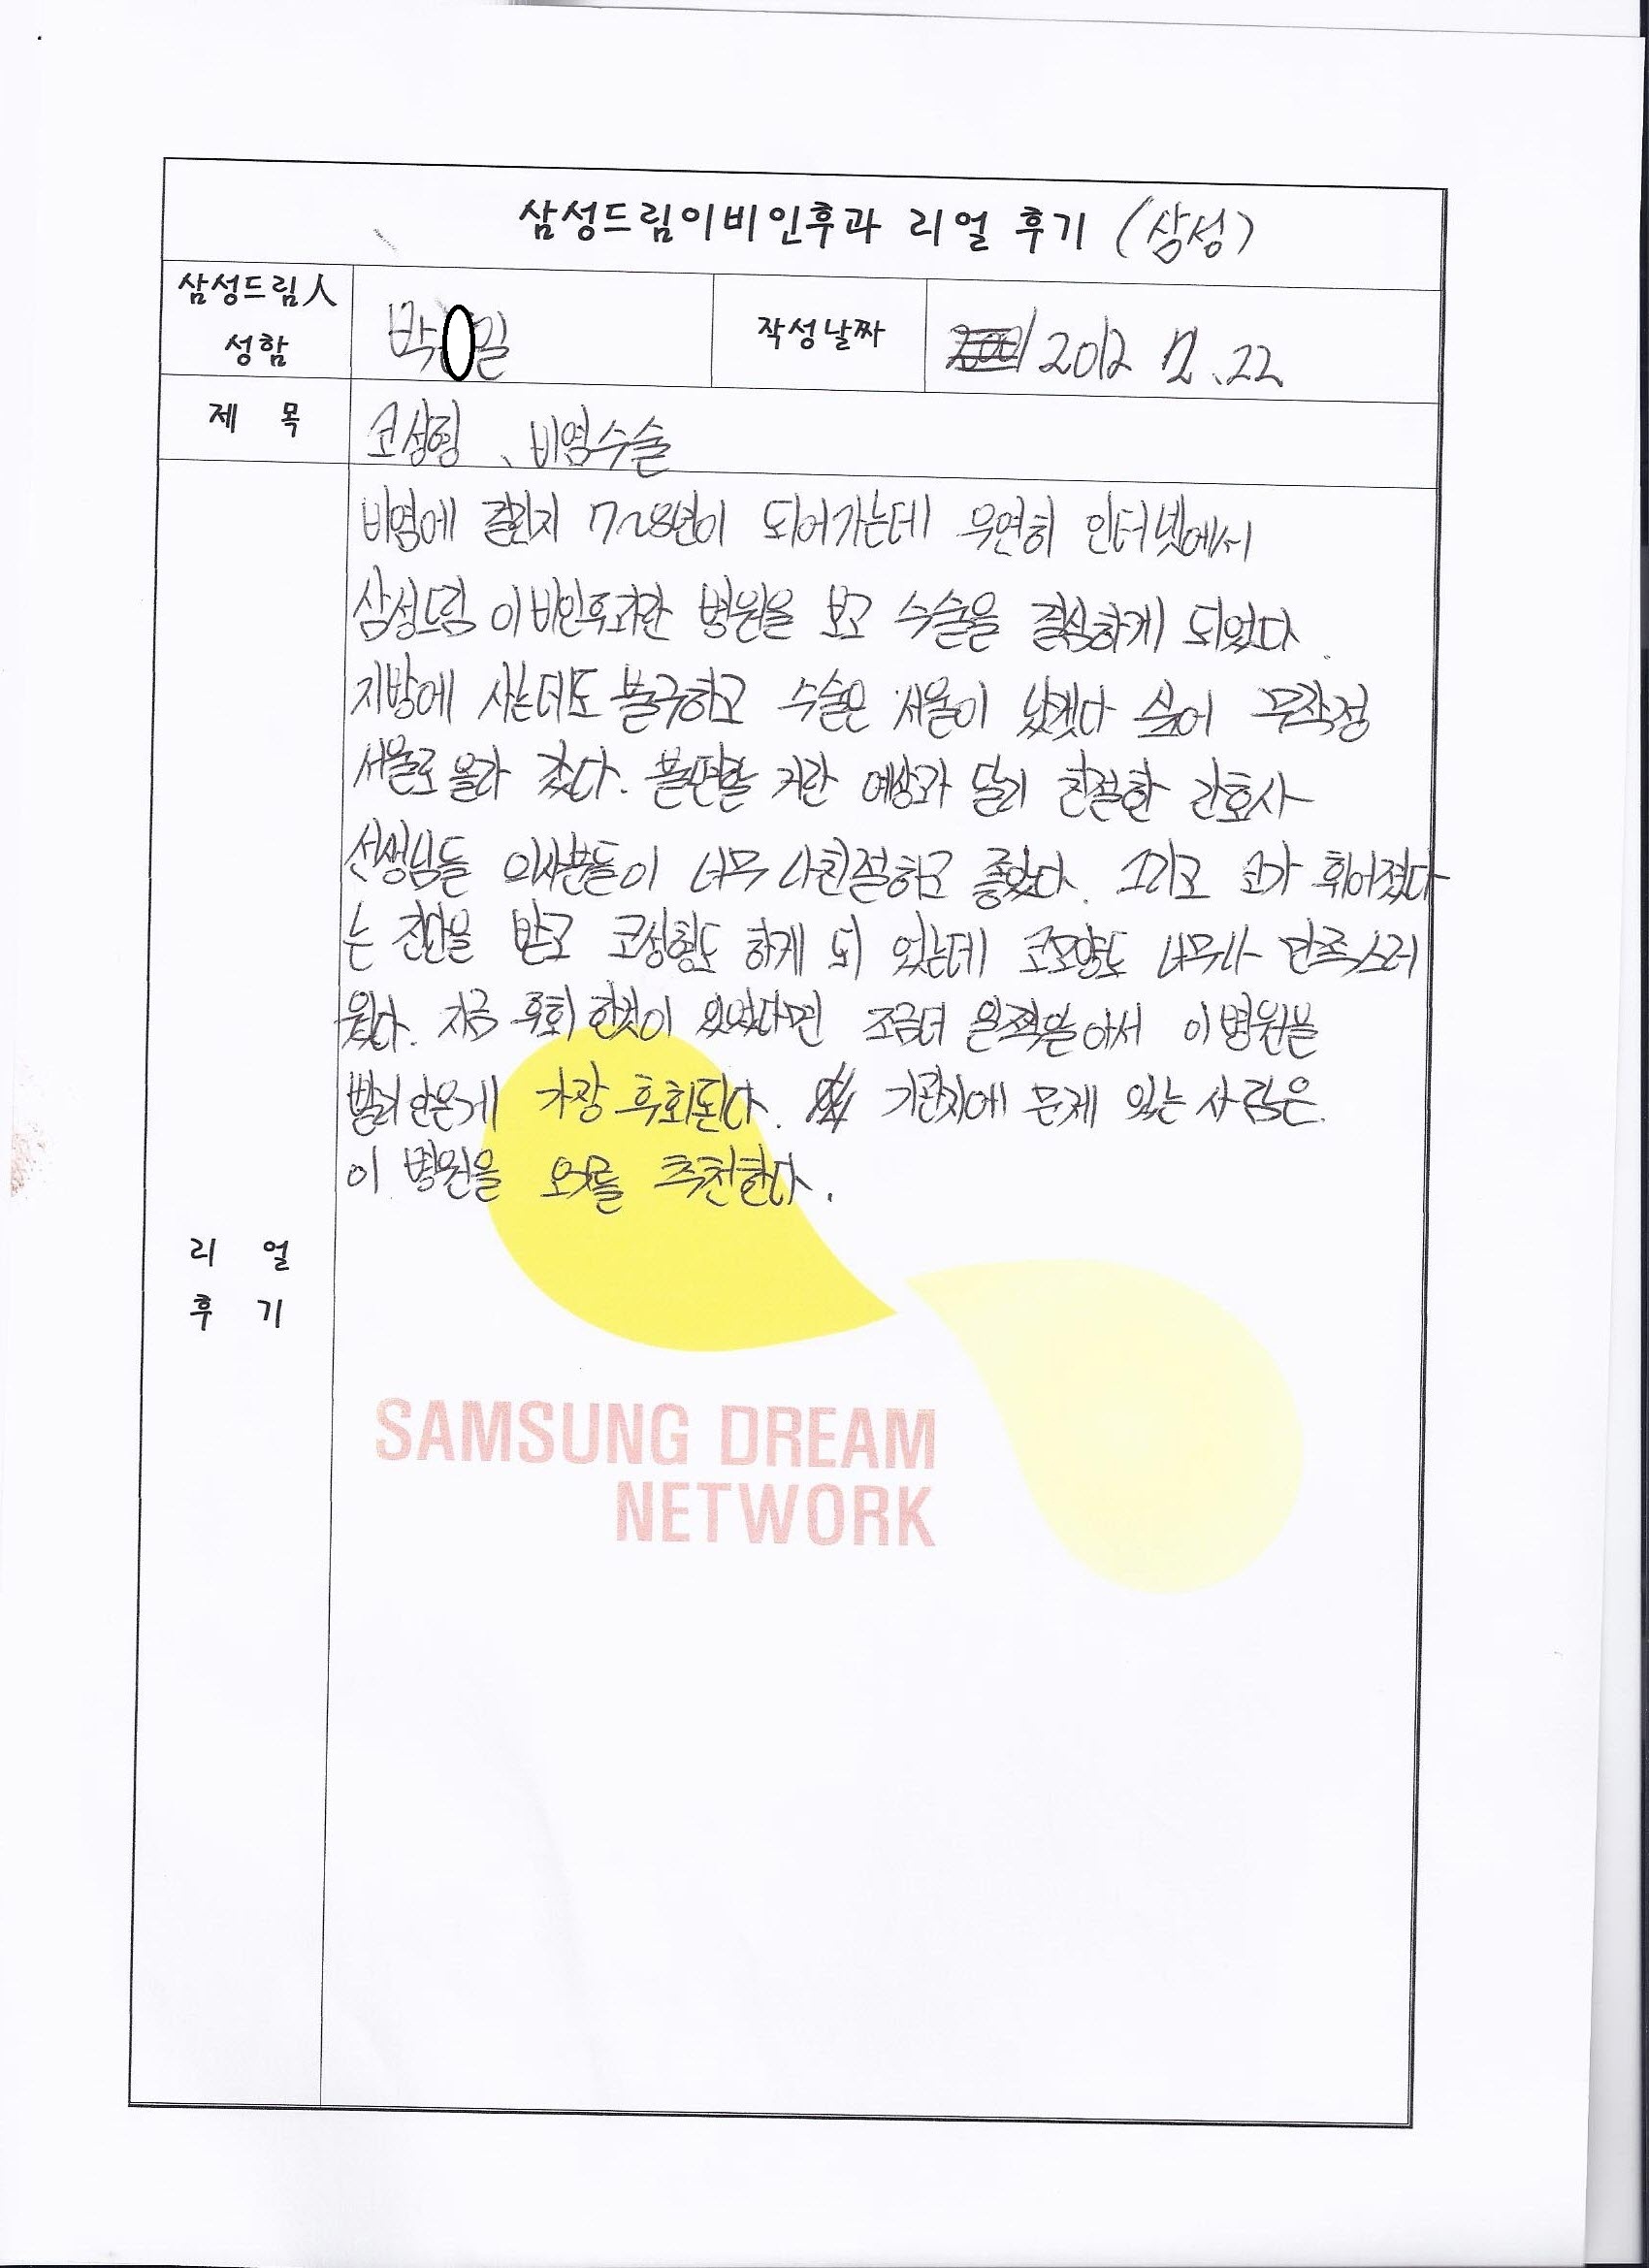 삼성드림이비인후과 리얼 후기 (삼성)
삼성드림人
성함
박 일
작성날짜
2012 12.22
제 목
코성형 、비염수술
비염에 걸린지 7~8년이 되어가는데 우연히 인터넷에서
삼성드림 이비인후과란 병원을 보고 수술을 결심하게 되었다.
지방에 사는데도 불구하고 수술은 서울이 낫겠다 싶어 무작정
서울로 올라 갔다. 불편할 거란 예상과 달리 친절한 간호사
선생님들 의사분들이 너무 나친절하고 좋았다. 그리고 코가 휘어졌다
는 진단을 받고 코성형도 하게 되 었는데 코모양도 너무나 만족스러
웠다. 지금 후회 한것이 있었다면 조금더 일찍알아서 이병원을
빨리안온게 가장 후회된다. 기관지에 문제 있는 사람은.
이 병원을 추천한다.
리 얼
후 기
SAMSUNG DREAM
NETWORK